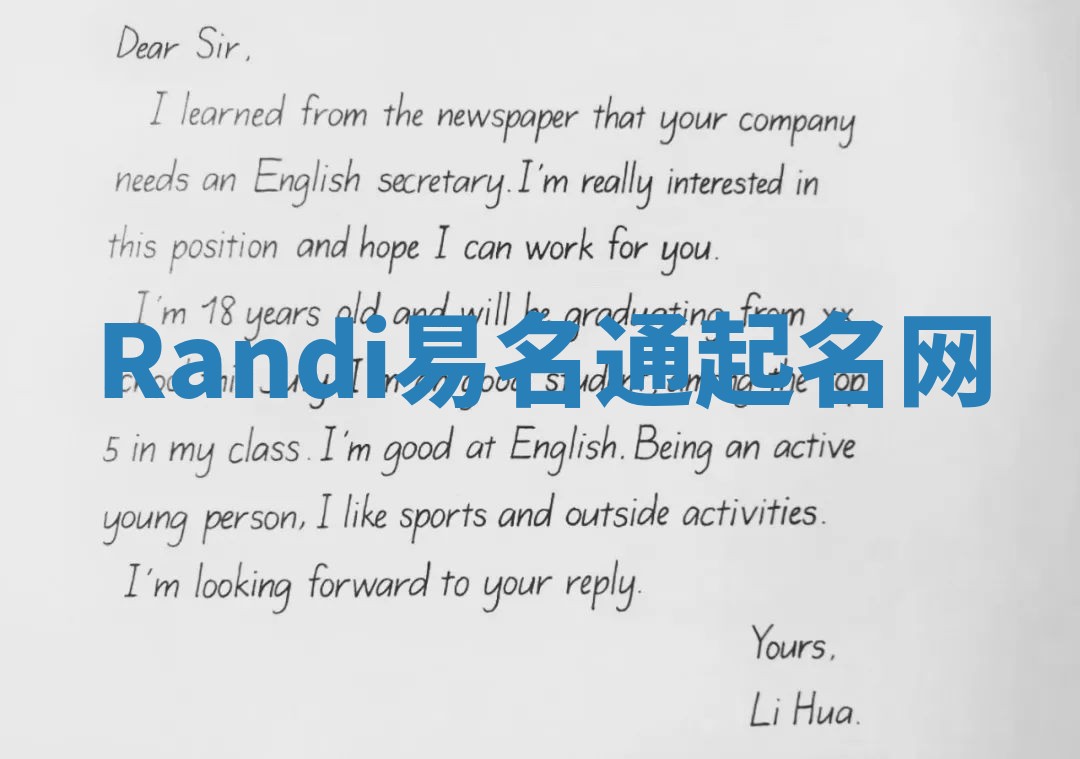 Dear Sir,
I learned from the newspaper that your company
needs an English secretary. I'm really interested in
this position and hope I can work for you.
I'm 18 years old and will be graduating from xx
Randi易名通起名网
July. I'm good student, among the top
5 in my class. I'm good at English. Being an active
young person, I like sports and outside activities.
I'm looking forward to your reply.
Yours,
Li Hua.